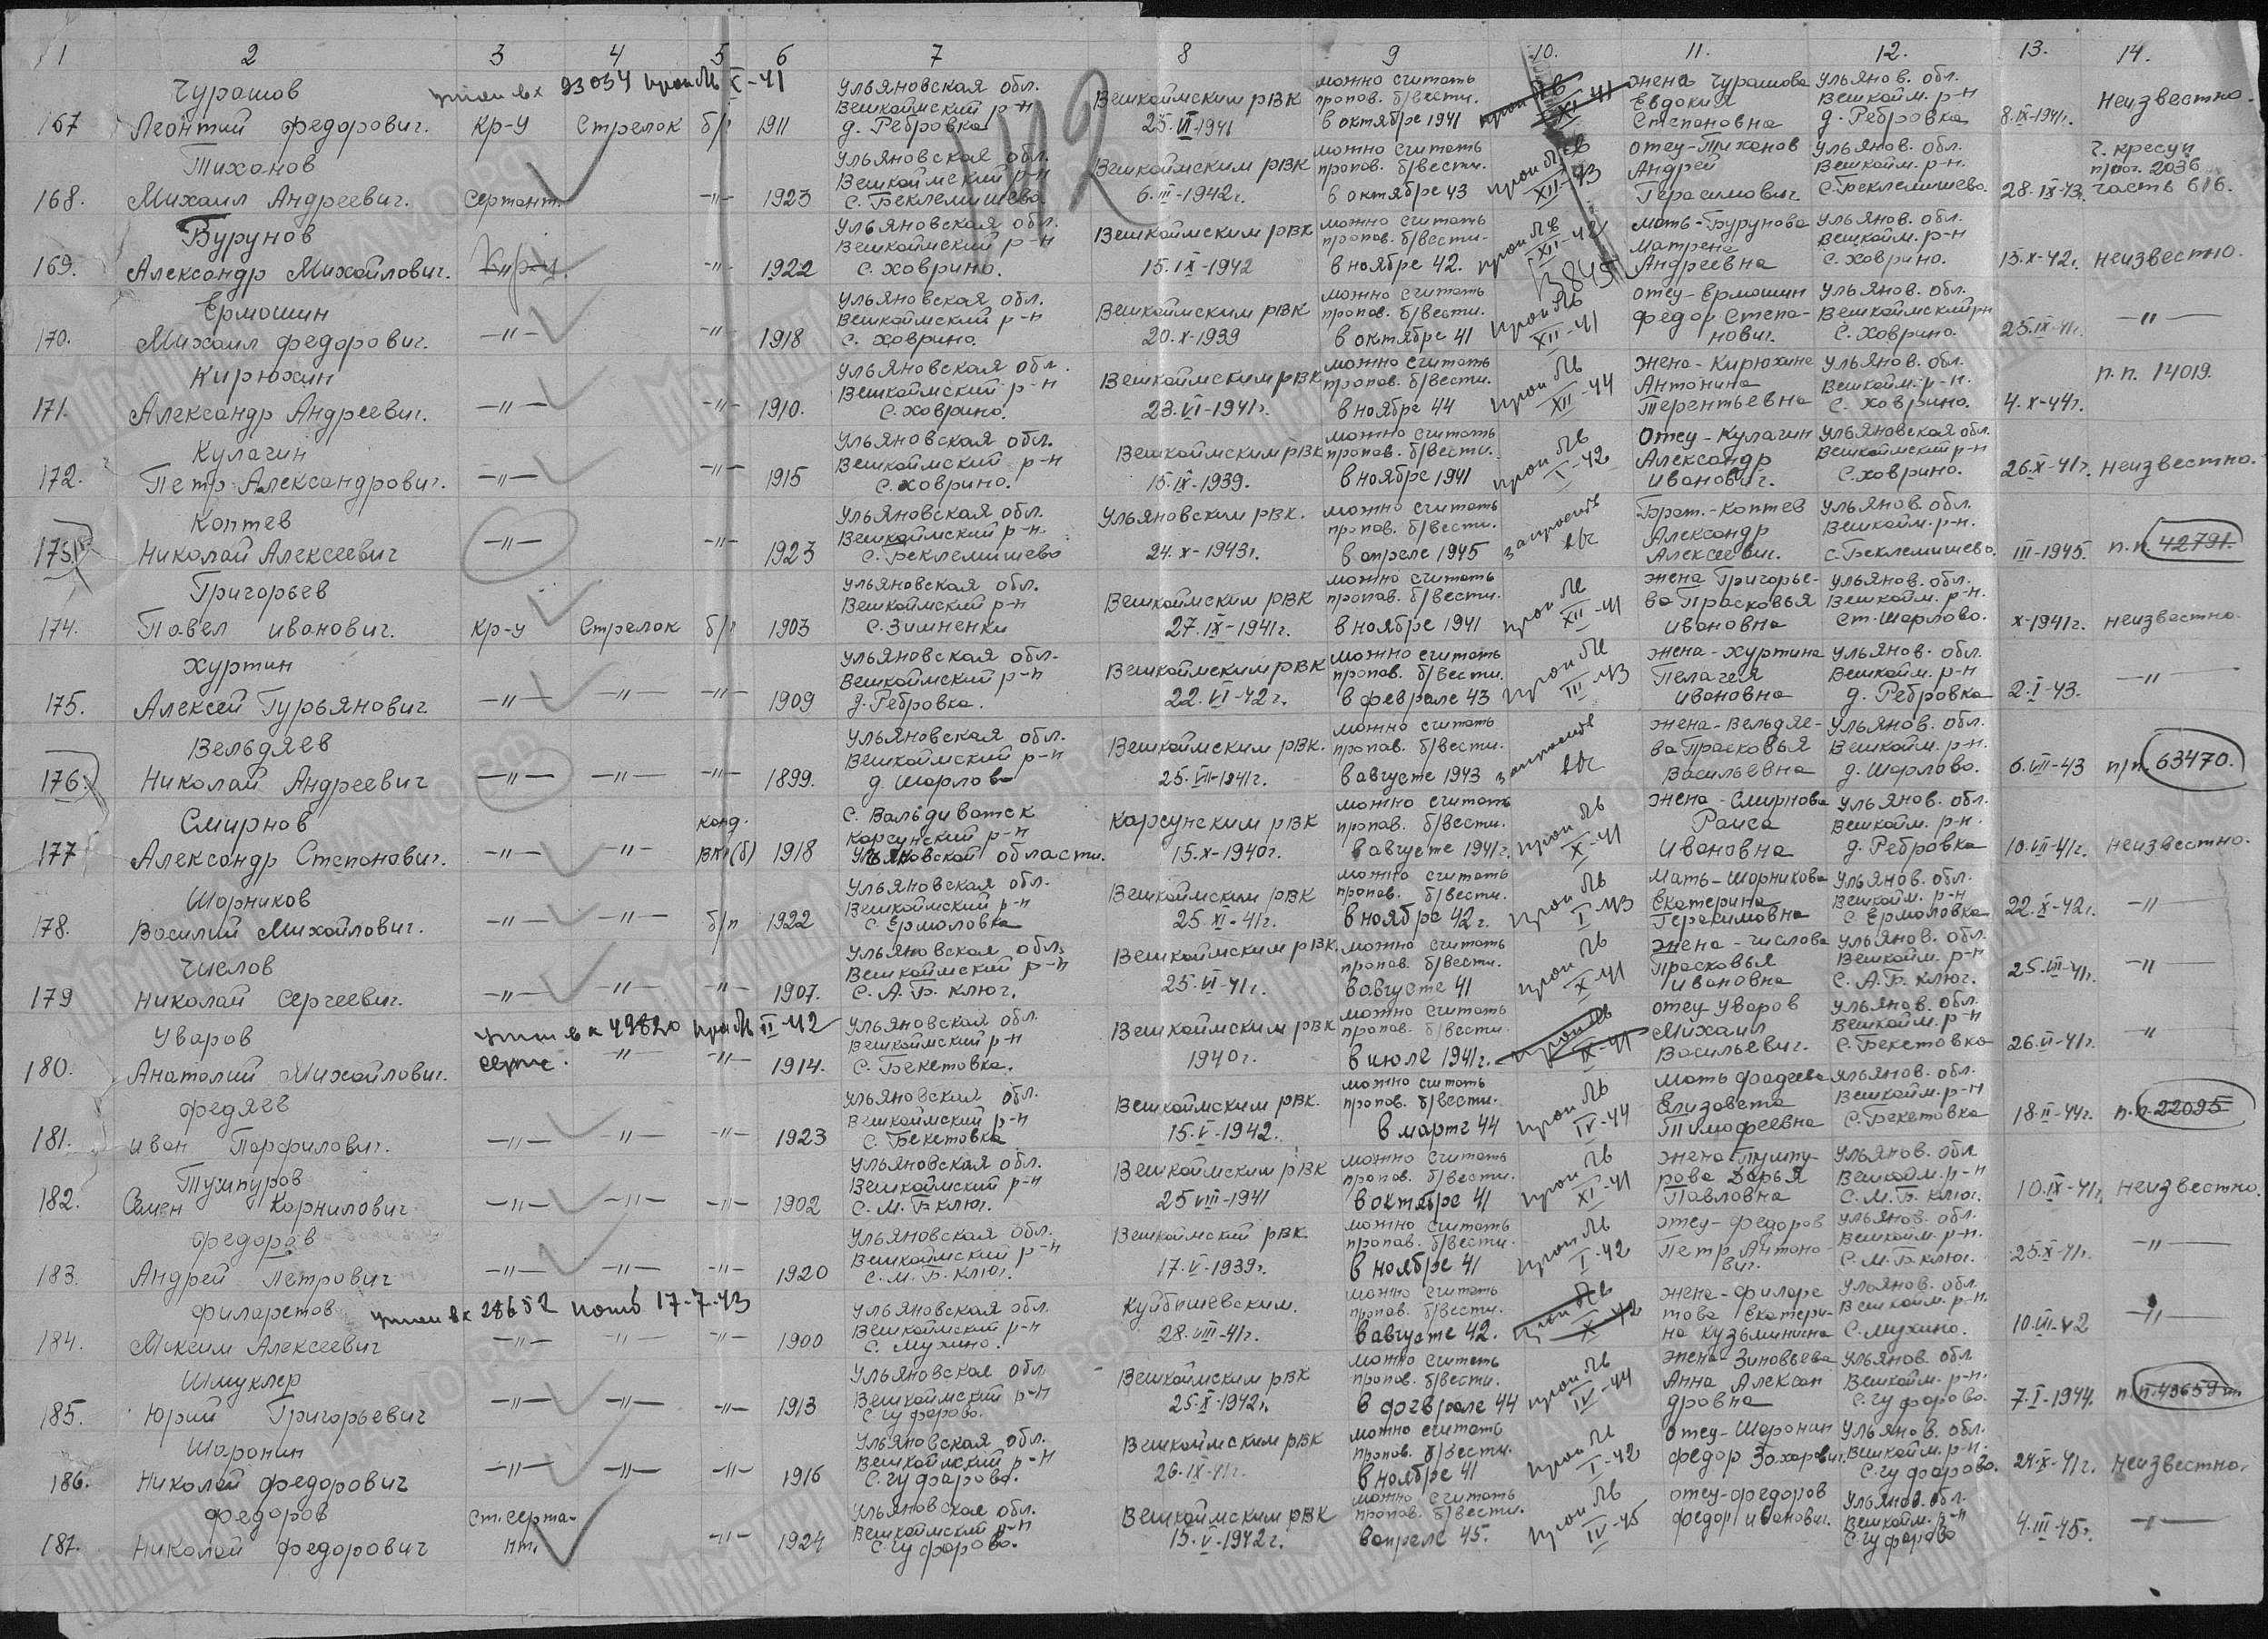 1 2 3 4 5 6 7 8 9 10. 11. 12. 13. 14.
167 Чурашов Леонтий Федорович. Кр-у Стрелок б/п 1911 Ульяновская обл. Вешкаймский р-н д. Ребровка Вешкаймским РВК 25.VI-1941 можно считать пропав. б/вести. в октябре 1941 жена Чурашова Евдокия Степановна Ульянов. обл. Вешкайм. р-н д. Ребровка 8.IX-1941г. Неизвестно.
168. Тихонов Михаил Андреевич. Сержант. -"- 1923 Ульяновская обл. Вешкаймский р-н с. Беклемишево Вешкаймским РВК 6.III-1942г. можно считать пропав. б/вести. в октябре 43 XII-43 отец-Тихонов Андрей Герасимович. Ульянов. обл. Вешкайм. р-н. с. Беклемишево. 28.IX-43. 2036 часть 616.
169. Бурунов Александр Михайлович. -"- 1922 Ульяновская обл. Вешкаймский р-н с. Ховрино. Вешкаймским РВК 15.IX-1942 можно считать пропав. б/вести. в ноябре 42. XII-42 мать-Бурунова Матрена Андреевна Ульянов. обл. Вешкайм. р-н с. Ховрино. 15.X-42г. неизвестно.
170. Ермошин Михаил Федорович. -"- -"- 1918 Ульяновская обл. Вешкаймский р-н с. Ховрино. Вешкаймским РВК 20.X-1939 можно считать пропав. б/вести. в октябре 41 XII-41 отец-Ермошин Федор Степанович. Ульянов. обл. Вешкаймский р-н с. Ховрино. 25.IX-41г. -"-
171. Кирюхин Александр Андреевич. -"- -"- 1910. Ульяновская обл. Вешкаймский р-н с. Ховрино. Вешкаймским РВК 23.VI-1941г. можно считать пропав. б/вести. в ноябре 44 XII-44 жена-Кирюхина Антонина Терентьевна Ульянов. обл. Вешкайм. р-н. с. Ховрино. 4.X-44г. п.п. 14019.
172. Кулагин Петр Александрович. -"- -"- 1915 Ульяновская обл. Вешкаймский р-н с. Ховрино. Вешкаймским РВК 15.IX-1939. можно считать пропав. б/вести. в ноябре 1941 I-42 Отец-Кулагин Александр Иванович. Ульяновская обл. Вешкаймский р-н с. Ховрино. 26.X-41г. неизвестно.
173 Коптев Николай Алексеевич -"- -"- 1923 Ульяновская обл. Вешкаймский р-н. с. Беклемишево Ульяновским РВК. 24.X-1943г. можно считать пропав. б/вести. в апреле 1945 запросить в/с Брат.-Коптев Александр Алексеевич. Ульянов. обл. Вешкайм. р-н. с. Беклемишево. III-1945. п.п. 42791.
174. Григорьев Павел Иванович. Кр-у Стрелок б/п 1903 Ульяновская обл. Вешкаймский р-н с. Зимненки Вешкаймским РВК 27.IX-1941г. можно считать пропав. б/вести. в ноябре 1941 XII-41 жена Григорьева Прасковья Ивановна Ульянов. обл. Вешкайм. р-н. ст. Шарлово. X-1941г. неизвестно.
175. Хуртин Алексей Гурьянович -"- -"- -"- 1909 Ульяновская обл. Вешкаймский р-н д. Ребровка. Вешкаймским РВК 22.VI-42г. можно считать пропав. б/вести. в феврале 43 III-43 жена-Хуртина Пелагея Ивановна Ульянов. обл. Вешкайм. р-н д. Ребровка 2.I-43. -"-
176. Вельдяев Николай Андреевич -"- -"- -"- 1899. Ульяновская обл. Вешкаймский р-н д. Шарлово Вешкаймским РВК. 25.VII-1941г. можно считать пропав. б/вести. в августе 1943 запросить в/с жена-Вельдяева Прасковья Васильевна Ульянов. обл. Вешкайм. р-н. д. Шарлово. 6.VII-43 п/п. 63470.
177 Смирнов Александр Степанович. -"- -"- канд. ВКП(б) 1918 с. Вальдиватск Карсунский р-н Ульяновской области. Карсунским РВК 15.X-1940г. можно считать пропав. б/вести. в августе 1941г. X-41 жена-Смирнова Раиса Ивановна Ульянов. обл. Вешкайм. р-н. д. Ребровка 10.VII-41г. неизвестно.
178. Шорников Василий Михайлович. -"- -"- б/п 1922 Ульяновская обл. Вешкаймский р-н с. Ермоловка Вешкаймским РВК 25.XI-41г. можно считать пропав. б/вести. в ноябре 42г. I-43 Мать-Шорникова Екатерина Герасимовна Ульянов. обл. Вешкайм. р-н с. Ермоловка 22.X-42г. -"-
179 Числов Николай Сергеевич. -"- -"- -"- 1907. Ульяновская обл. Вешкаймский р-н с. А.Б. Ключ. Вешкаймским РВК. 25.VI-41г. можно считать пропав. б/вести. в августе 41 X-41 жена-Числова Прасковья Ивановна Ульянов. обл. Вешкайм. р-н с. А.Б. Ключ. 25.VII-41г. -"-
180. Уваров Анатолий Михайлович. -"- -"- 1914. Ульяновская обл. Вешкаймский р-н с. Бекетовка. Вешкаймским РВК 1940г. можно считать пропав. б/вести. в июле 1941г. IX-41 отец Уваров Михаил Васильевич. Ульянов. обл. Вешкайм. р-н с. Бекетовка 26.VI-41г. -"-
181. Федяев Иван Порфилович. -"- -"- -"- 1923 Ульяновская обл. Вешкаймский р-н с. Бекетовка Вешкаймским РВК. 15.V-1942. можно считать пропав. б/вести. в марте 44 IV-44 мать Фадеева Елизавета Тимофеевна Ульянов. обл. Вешкайм. р-н с. Бекетовка 18.II-44г. п.п. 22095
182. Тумпуров Семен Корнилович -"- -"- -"- 1902 Ульяновская обл. Вешкаймский р-н с. М. Б ключ. Вешкаймским РВК 25 VIII-1941 можно считать пропав. б/вести. в октябре 41 XI-41 жена-Тумпурова Дарья Павловна Ульянов. обл Вешкайм. р-н с. М. Б. ключ. 10.IX-41г. неизвестно.
183. Федоров Андрей Петрович -"- -"- -"- 1920 Ульяновская обл. Вешкаймский р-н с. М. Б. ключ. Вешкаймский РВК 17.V-1939г. можно считать пропав. б/вести. в ноябре 41 I-42 отец-Федоров Петр Антонович. Ульянов. обл. Вешкайм. р-н. с. М. Б. ключ. 25.X-41г. -"-
184. Филаретов Максим Алексеевич 28652 17-7-43 -"- -"- -"- 1900 Ульяновская обл. Вешкаймский р-н с. Мухино. Куйбышевским. 28.VIII-41г. можно считать пропав. б/вести. в августе 42. X-42 жена-Филаретова Екатерина Кузьминична Ульянов. обл. Вешкайм. р-н. с. Мухино. -"-
185. Шмуклер Юрий Григорьевич -"- -"- -"- 1913 Ульяновская обл Вешкаймский р-н с. Чуфарово. Вешкаймским РВК 25.X-1942г. можно считать пропав. б/вести. в феврале 44 IV-44 жена-Зиновьева Анна Александровна Ульянов. обл. Вешкайм. р-н. с. Чуфарово. 7.I-1944.
186. Шаронин Николай Федорович -"- -"- -"- 1916 Ульяновская обл. Вешкаймский р-н с. Чуфарово. Вешкаймским РВК 26.IX-41г. можно считать пропав. б/вести. в ноябре 41 I-42 отец-Шаронин Федор Захарович. Ульянов. обл. Вешкайм. р-н. с. Чуфарово. 24.X-41г. неизвестно.
187. Федоров Николай Федорович Ст. сержант. -"- 1924 Ульяновская обл. Вешкаймский р-н с. Чуфарово. Вешкаймским РВК 15.V-1942г. можно считать пропав. б/вести. в апреле 45. IV-45 отец-Федоров Федор Иванович. Ульянов. обл. Вешкайм. р-н с. Чуфарово 4.III-45г. -"-